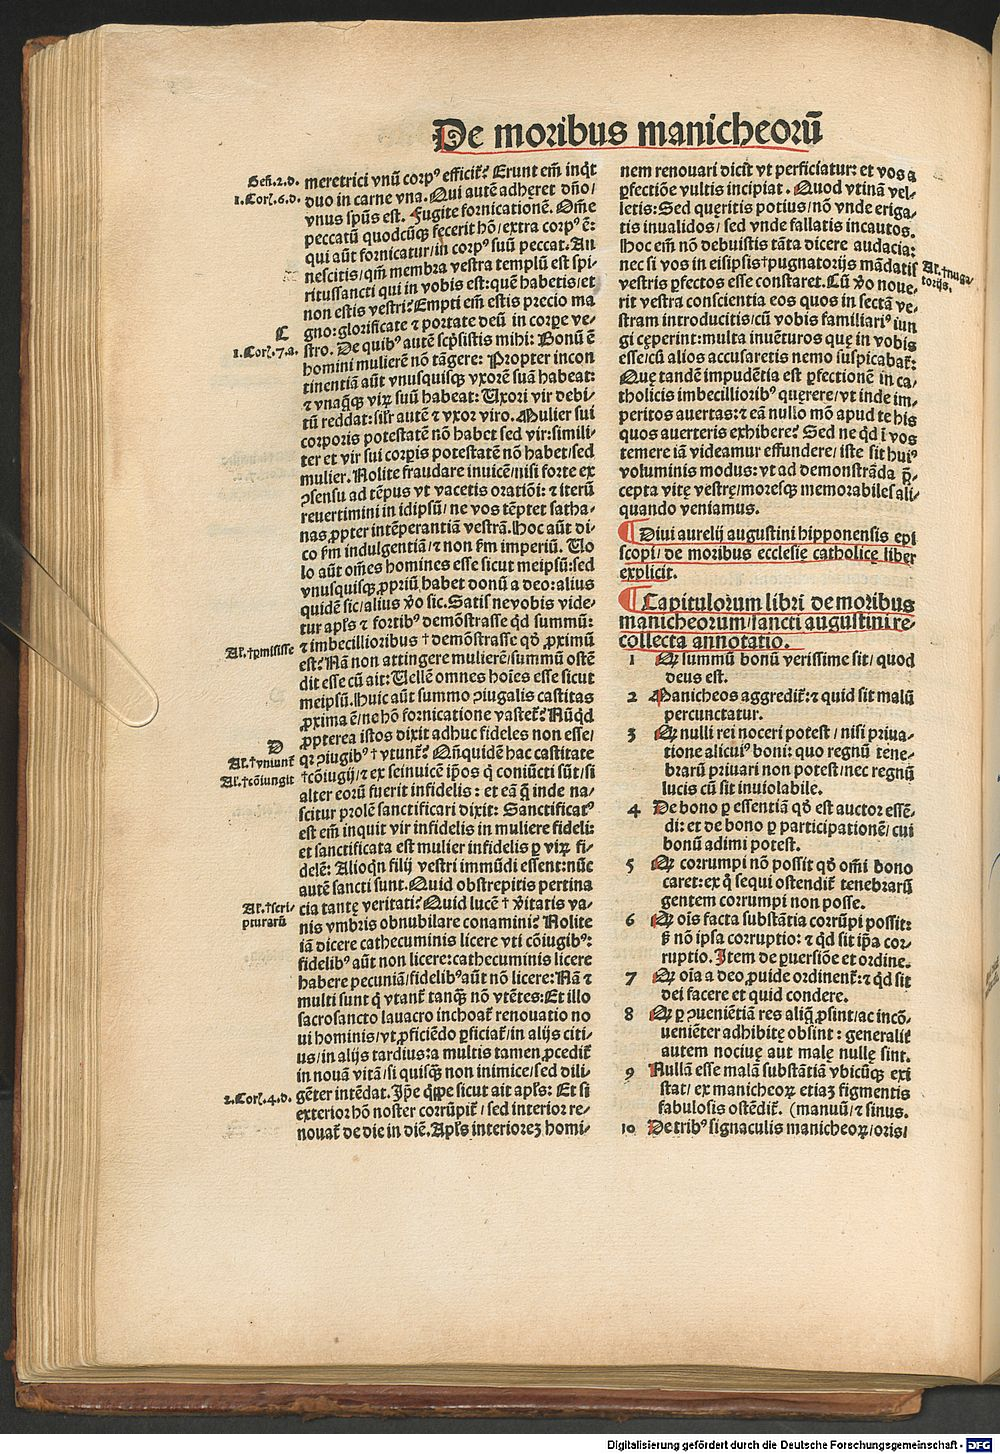 De moribus manicheorũ
Geñ.2.d.
1.Corꝭ.6.d.
meretrici vnũ corpꝰ efficiť? Erunt em̃ inq̈t
duo in carne vna. Qui autẽ adhęret dño/
vnus sp̃us est. Fugite fornicationẽ. Om̃e
peccatũ quodcũqꝫ fecerit hõ/extra corpꝰ ẽ:
qui aũt fornicatur/in corpꝰ suũ peccat. An
nescitis/qm̃ membra vestra templũ est spi-
ritussancti qui in vobis est: quẽ habetis/et
non estis vestri? Empti em̃ estis precio ma
C
gno: glorificate ⁊ portate deũ in corpe ve-
1.Corꝭ.7.a.
stro. De quibꝰ autẽ scp̃sistis mihi: Bonũ ẽ
homini mulierẽ nõ tãgere: Propter incon
tinentiã aũt vnusquisqꝫ vxorẽ suã habeat:
⁊ vnaq̃qꝫ virꝝ suũ habeat: Uxori vir debi-
tũ reddat: silr̃ autẽ ⁊ vxor viro. Mulier sui
corporis potestatẽ nõ habet sed vir: simili-
ter et vir sui corpis potestatẽ nõ habet/sed
mulier. Nolite fraudare inuicẽ/nisi forte ex
ꝯsensu ad tẽpus vt vacetis oratiõi: ⁊ iterũ
reuertimini in idipsũ/ne vos tẽptet satha-
nas ꝓpter intẽperantiã vestrã. Hoc aũt di-
co fm̃ indulgentiã/⁊ non fm̃ imperiũ. Uo
lo aũt om̃es homines esse sicut meipsũ: sed
vnusquisqꝫ ꝓpriũ habet donũ a deo: alius
quidẽ sic/alius ṽo sic. Satis ne vobis vide-
tur apl̃s ⁊ fortibꝰ demõstrasse qd̃ summũ:
Al̃.†ꝓmisisse
⁊ imbecillioribus † demõstrasse qd̃ ꝓximũ
est? Nã non attingere mulierẽ/summũ ostẽ
dit esse cũ ait: Uellẽ omnes hoĩes esse sicut
meipsũ. Huic aũt summo ꝯiugalis castitas
ꝓxima ẽ/ne hõ fornicatione vasteť? Nũq̈d
ꝓpterea istos dixit adhuc fideles non esse/
D
Al̃.†vniunť
qꝛ ꝯiugibꝰ † vtunť? Qñquidẽ hac castitate
Al̃.†cõiungit
†cõiugij/⁊ ex seinuicẽ ip̃os q̇ coniũcti sũt/si
alter eorũ fuerit infidelis: et eã q̃ inde na-
scitur prolẽ sanctificari dixit: Sanctificatꝰ
est em̃ inquit vir infidelis in muliere fideli:
et sanctificata est mulier infidelis ꝑ virꝝ fi-
delẽ: Alioqn̈ filij vestri immũdi essent: nũc
autẽ sancti sunt. Quid obstrepitis pertina
Al̃.†scri-
pturarũ
cia tantę veritati? Quid lucẽ † ṽitatis va-
nis vmbris obnubilare conamini? Nolite
iã dicere cathecuminis licere vti cõiugibꝰ:
fidelibꝰ aũt non licere: cathecuminis licere
habere pecuniã/fidelibꝰ aũt nõ licere: Nã ⁊
multi sunt q̇ vtanť tanq̃ꝫ nõ vtẽtes: Et illo
sacrosancto lauacro inchoať renouatio no
ui hominis/vt ꝓficiẽdo ꝑficiať/in alijs citi-
us/in alijs tardius: a multis tamen ꝓcediť
in nouã vitã/si quisqꝫ non inimice/sed dili-
2.Corꝭ.4.d.
gẽter intẽdat. Ip̃e q̈ppe sicut ait apl̃s: Et si
exterior hõ noster corrũpiť/sed interior re-
nouať de die in diẽ. Apl̃s interiorẽ homi-
nem renouari dicit vt perficiatur: et vos a
ꝑfectiõe vultis incipiat. Quod vtinã vel-
letis: Sed quęritis potius/nõ vnde eriga-
tis inualidos/sed vnde fallatis incautos.
Hoc em̃ nõ debuistis tãta dicere audacia:
nec si vos in eisipsis † pugnatorijs mãdatis
Al̃.†nuga-
torijs.
vestris ꝑfectos esse constaret. Cũ ṽo noue-
rit vestra conscientia eos quos in sectã ve-
stram introducitis/cũ vobis familiariꝰ iun
gi cęperint: multa inuẽturos quę in vobis
esse/cũ alios accusaretis nemo suspicabať:
Quę tandẽ impudẽtia est ꝑfectionẽ in ca-
tholicis imbecilliorib' quęrere/vt inde im-
peritos auertas: ⁊ eã nullo mõ apud te his
quos auerteris exhibere? Sed ne qd̃ ĩ vos
temere iã videamur effundere/iste sit huiꝰ
voluminis modus: vt ad demonstrãda p̃-
cepta vitę vestrę/moresqꝫ memorabiles ali-
quando veniamus.
¶ Diui aurelij augustini hipponensis epi
scopi/de moribus ecclesię catholicę liber
explicit.
¶ Capitulorum libri de moribus
manicheorum/sancti augustini re-
collecta annotatio.
1 Qꝛ summũ bonũ verissime sit/quod
deus est.
2 Manicheos aggrediť: ⁊ quid sit malũ
percunctatur.
3 Qꝛ nulli rei noceri potest/nisi priua-
tione alicuiꝰ boni: quo regnũ tene-
brarũ priuari non potest/nec regnũ
lucis cũ sit inuiolabile.
4 De bono ꝑ essentiã qd̃ est auctor essẽ-
di: et de bono ꝑ participationẽ/cui
bonũ adimi potest.
5 Qꝛ corrumpi nõ possit qd̃ om̃i bono
caret: ex q̊ sequi ostendiť tenebrarũ
gentem corrumpi non posse.
6 Qꝛ oĩs facta substãtia corrũpi possit:
ꝫ nõ ipsa corruptio: ⁊ qd̃ sit ip̃a cor-
ruptio. Item de ꝑuersiõe et ordine.
7 Qꝛ oĩa a deo ꝓuide ordinenť: ⁊ qd̃ sit
dei facere et quid condere.
8 Qꝛ ꝑ ꝯueniẽtiã res aliq̃ ꝓsint/ac incõ-
ueniẽter adhibitę obsint: generaliť
autem nociuę aut malę nullę sint.
9 Nullã esse malã substãtiã vbicũqꝫ exi
stat/ex manicheoꝝ etiaꝫ figmentis
fabulosis ostẽdiť. (manuũ/⁊ sinus.
10 De tribꝰ signaculis manicheoꝝ/oris/
Digitalisierung gefördert durch die Deutsche Forschungsgemeinschaft - DFG